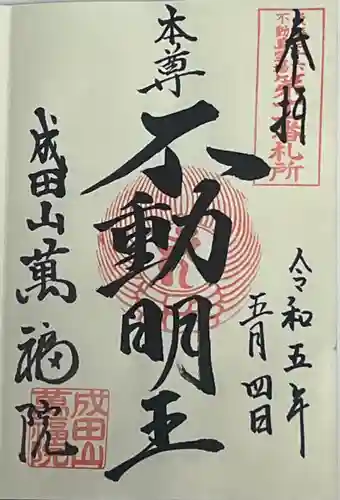 奉拝
札所
令和五年
五月四日
本尊
不動明王
成田山萬福院
成田山
萬福院